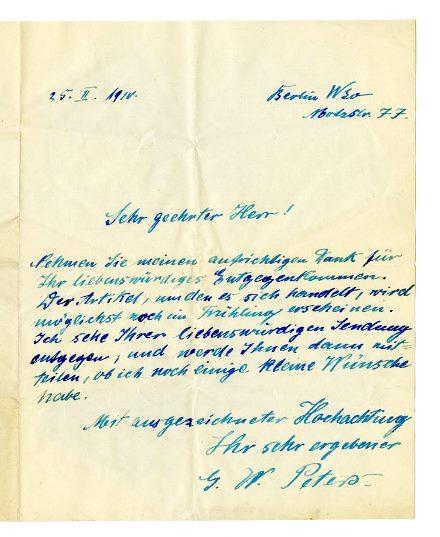 25. II. 1910.
Berlin W30
Motzstr. 77.
Sehr geehrter Herr!
Nehmen Sie meinen aufrichtigen Dank für
Ihr liebenswürdiges Entgegenkommen.
Der Artikel, um den es sich handelt, wird
möglichst noch im Frühling erscheinen.
Ich sehe Ihrer liebenswürdigen Sendung
entgegen, und werde Ihnen dann mit=
teilen, ob ich noch einige kleine Wünsche
habe.
Mit ausgezeichneter Hochachtung
Ihr sehr ergebener
G. W. Peters